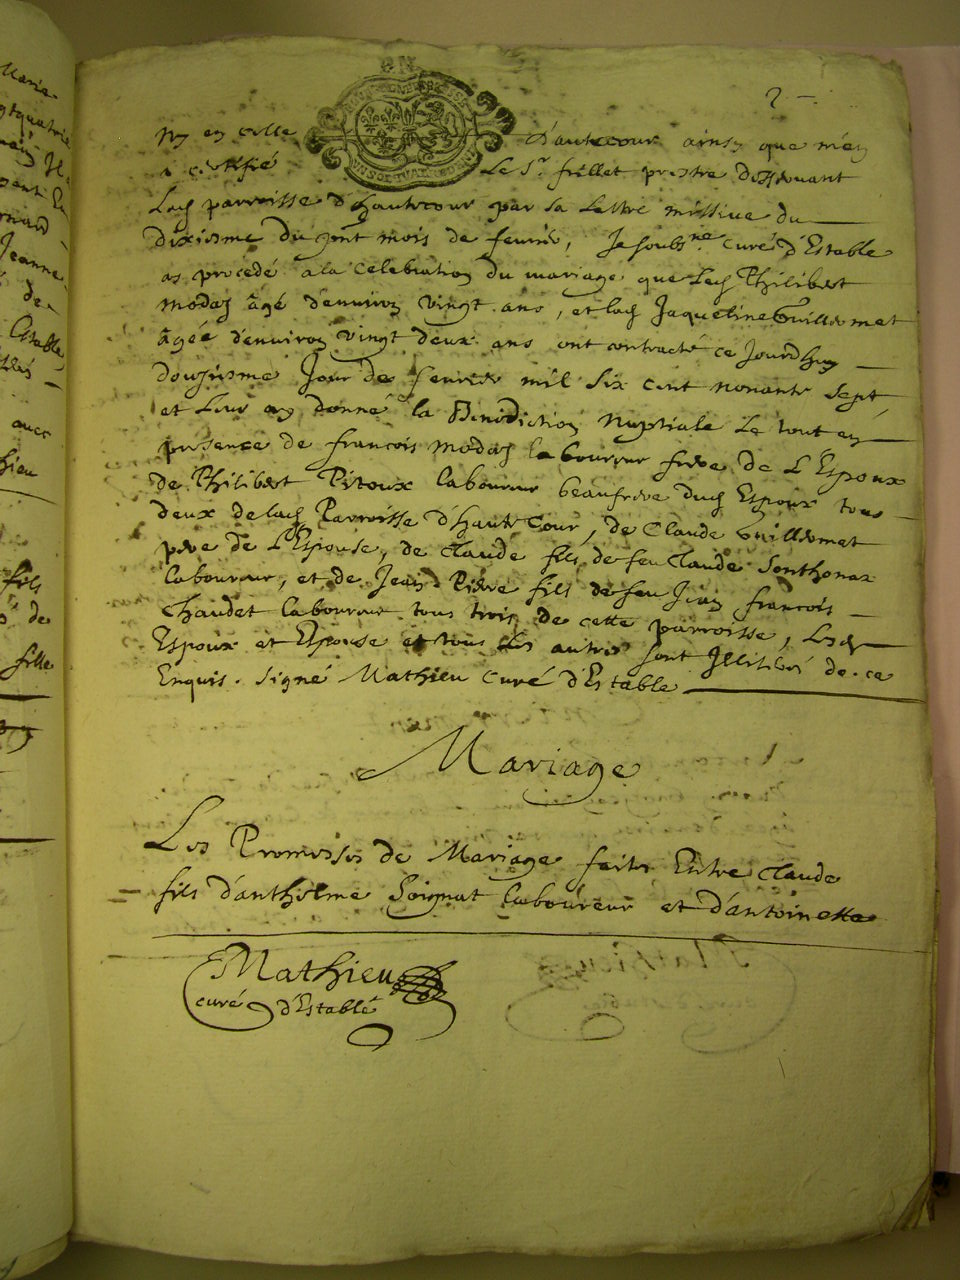 2
ny en celle d'hautecour ainsy que m'en
a certifié Le Sr. frillet prestre desservant
Lad parroisse d'hautecour par sa Lettre missive du
dixieme du pnt mois de fevrier, Je soubsné curé d'Estable
as procedé a la celebration du mariage que Led Philibert
modas âgé d'environ vingt ans, et lad Jaqueline Guillermet
âgée d'environ vingt deux ans ont contracté ce Jourdhuy
douziesme Jour de fevrier mil six cent nonante sept
et Leur ay donné la Benediction Nuptiale Le tout en
presence de francois modas laboureur frere de L'Espoux
de Philibert Pitoux laboureur beaufrere dud Espoux tous
deux de lad Parroisse d'HauteCour, de Claude Guillermet
pere de L'Espouse, de Claude fils de feu Claude Sonthonax
laboureur, et de Jean Pierre fils de feu Jean francois
Chaudet laboureur tous trois de cette parroisse, Lesd
Espoux et Espouse et tous les autres sont Illiterés de ce
Enquis. Signé Mathieu curé d'Estable
Mariage
Les Promesses de Mariage faites Entre Claude
fils d'anthelme Soignat laboureur et d'antoinette
Mathieu
curé d'Estable